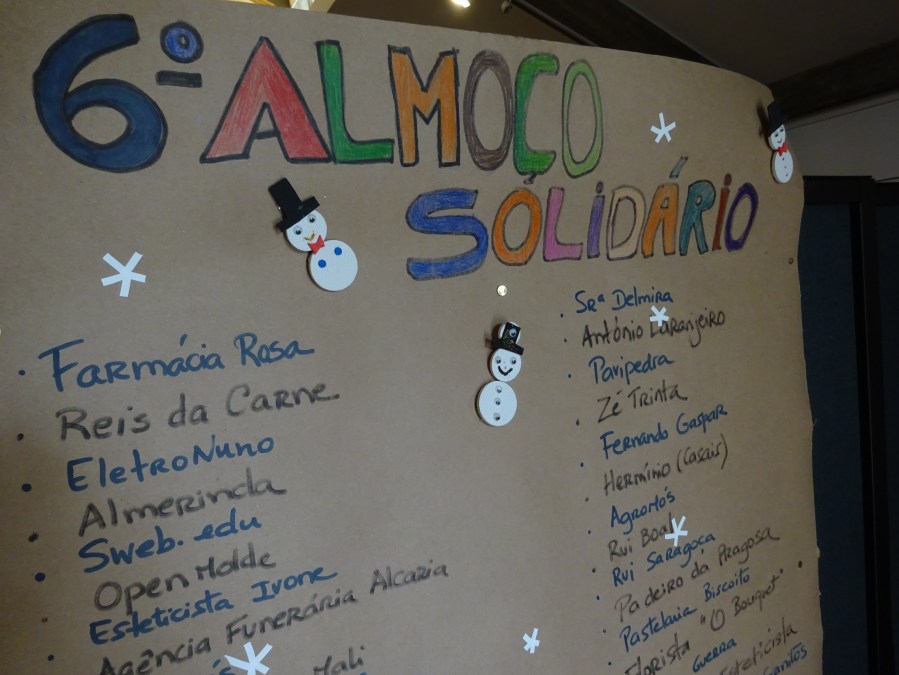 6º ALMOÇO
SOLIDÁRIO
Farmácia Rosa
Reis da Carne
EletroNuno
Almerinda
Sweb.edu
OpenMolde
Esteticista Ivone
Agência Funerária Alcaria
Srª Delmira
António Laranjeiro
Pavipedra
Zé Trinta
Fernando Gaspar
Hermínio (Casais)
Agromós
Rui Boal
Rui Saragoça
Padeiro da Pragosa
Pastelaria Biscoito
Florista "O Bouquet"
Guerra
Esteticista